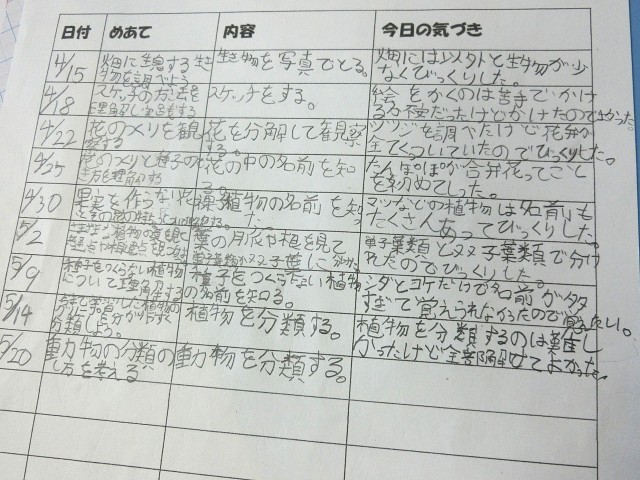 日付 めあて 内容 今日の気づき
4/15 畑に生息する生 生き物を写真でとる。 畑には以外と生物が少
物を調べよう なくてびっくりした。
4/18 スケッチの方法を スケッチをする。 絵をかくのは苦手でかけ
理解し る不安だったけどかけたのでよかった。
4/22 花のつくりを観 花を分解して観察 ツツジを調べたけど花弁が
察する する。 全てくっついていたのでびっくりした。
4/25 花のつくりと種子の 花の中の名前を知 たんぽぽが合弁花ってこと
る。 を初めてしった。
4/30 果実を作らない花 裸子植物の名前を知 マツなどの植物は名前も
った。 たくさんあってびっくりした。
5/2 葉の 根を見て 単子葉類と双子葉類で分け
双子葉に分けた れたのでびっくりした。
5/9 種子をつくらない植物 種子をつくらない植物 シダとコケだけで名前が多
について理解する の名前を知る。 すぎて覚えられなかったので覚えたい。
5/14 植物を 植物を分類する。 植物を分類するのは難し
分類しよう。 かったけど全部解けてよかった。
5/20 動物の分類の 動物を分類する。
し方を考える